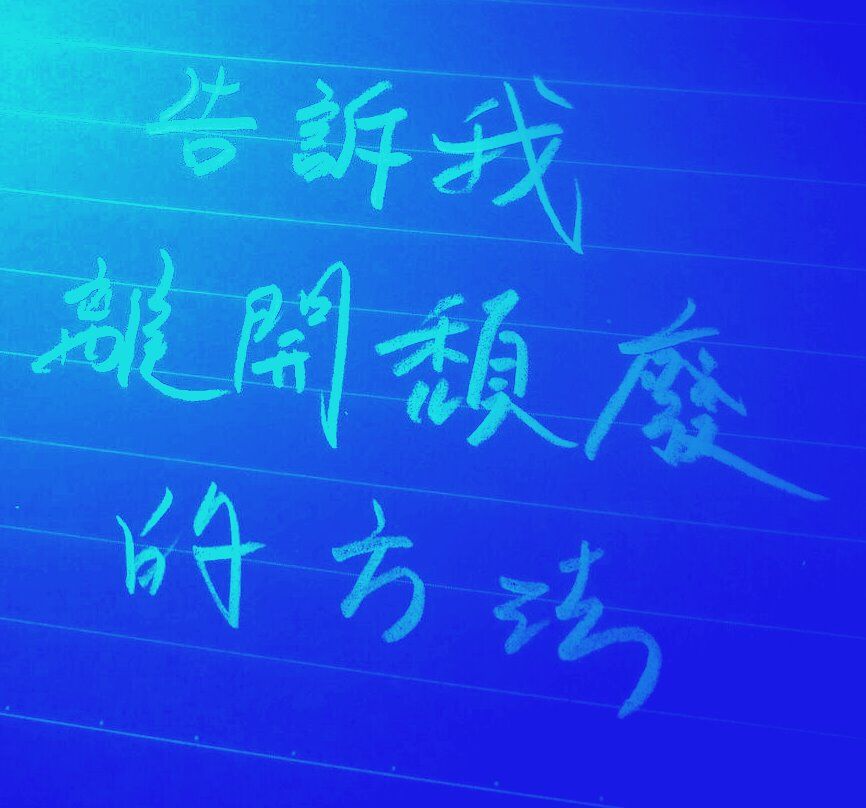 告訴我
離開頹廢
的方法